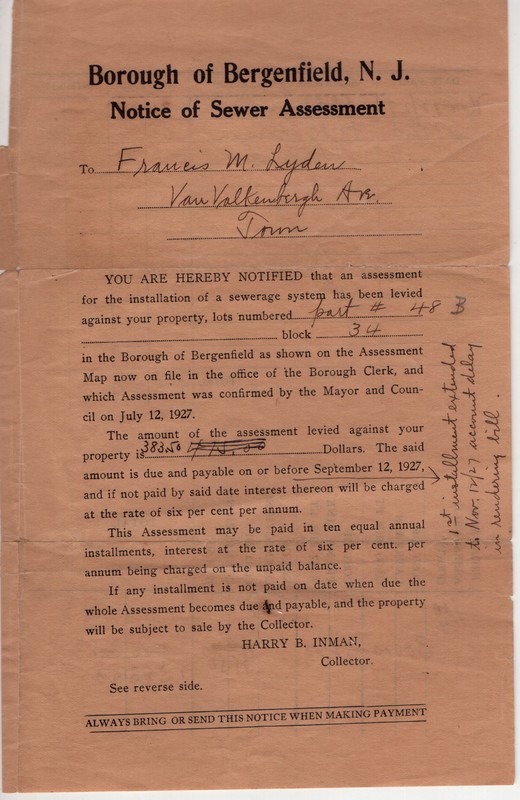 Borough of Bergenfield, N. J.
Notice of Sewer Assessment
To Francis M. Lyden
Van Valkenbergh Ave.
Town
YOU ARE HEREBY NOTIFIED that an assessment
for the installation of a sewerage system has been levied
against your property, lots numbered part # 48
block 34
in the Borough of Bergenfield as shown on the Assessment
Map now on file in the office of the Borough Clerk, and
which Assessment was confirmed by the Mayor and Coun-
cil on July 12, 1927.
The amount of the assessment levied against your
property is 383.50 Dollars. The said
amount is due and payable on or before September 12, 1927,
and if not paid by said date interest thereon will be charged
at the rate of six per cent per annum.
This Assessment may be paid in ten equal annual
installments, interest at the rate of six per cent. per
annum being charged on the unpaid balance.
If any installment is not paid on date when due the
whole Assessment becomes due and payable, and the property
will be subject to sale by the Collector.
HARRY B. INMAN,
Collector.
See reverse side.
ALWAYS BRING OR SEND THIS NOTICE WHEN MAKING PAYMENT
1st installment extended
to Nov. 12/27 account delay
in rendering bill.